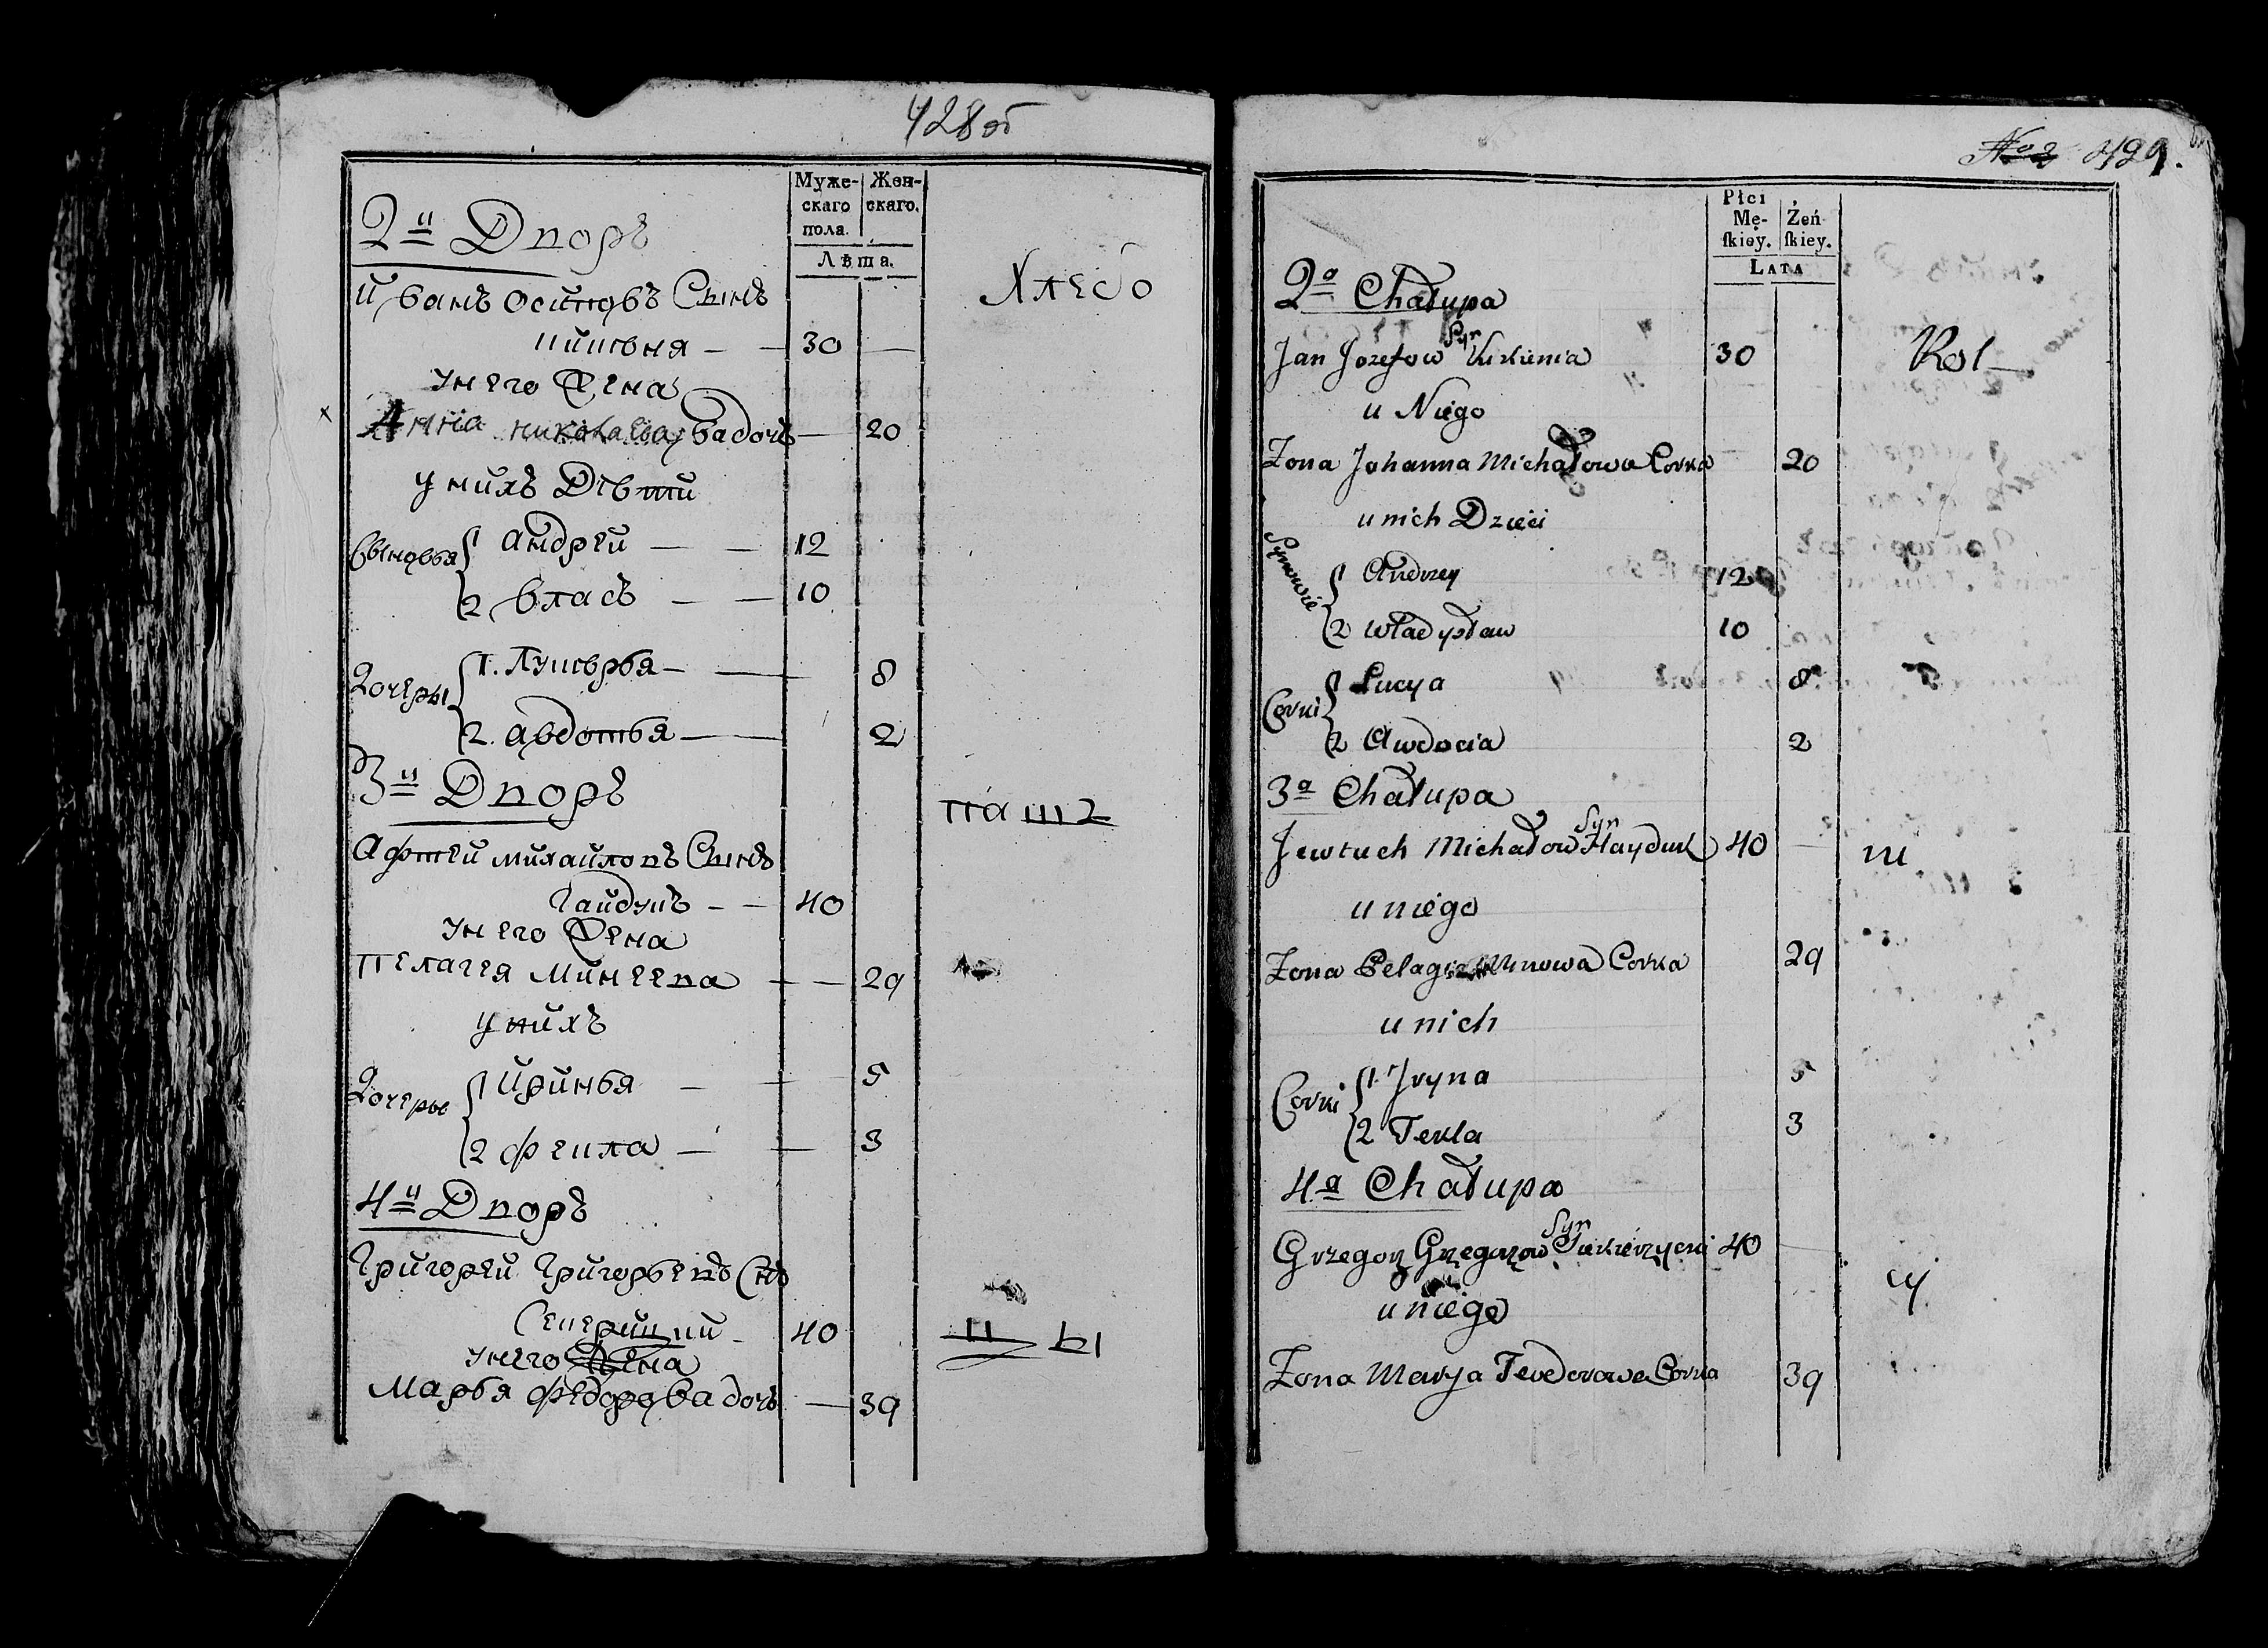 428об
Муже-
скаго
пола.
Жен-
скаго.
Лѣта.
2й Дворъ
Иванъ Осиповъ Сынъ
30
у него Жена
Анна Николаева дочь — 20
у нихъ Дѣти
Сыновья
1 Андрей — — 12
2 Власъ — — 10
Дочеры
1. Лукерья — — 8
2. Авдотья — — 2
3й Дворъ
Афтей Михайловъ Сынъ
Гайдукъ — — 40
у него Жена
Пелагея Минеева — — 29
у нихъ
Дочеры
1 Иринья — — 5
2 Фекла — — 3
4й Дворъ
Григорей Григорьевъ Снъ
40
у него Жена
Марья Федорова дочь — 39
Хлебо
паш
ц ы
No 2 429.
Płci
Mę-
ſkiey.
Żeń
ſkiey.
LATA
2a Chałupa
Jan Jozefow Syn Kukunia 30
u Niego
Zona Johanna Michałowa Corka 20
u nich Dzieci
Synowie
1 Andrzey 12
2 Władysław 10
Corki
1 Łucya 8
2 Awdocia 2
3a Chałupa
Jewtuch Michałow Syn Hayduk 40
u niego
Zona Pelagia Minowa Corka 29
u nich
Corki
1. Jryna 5
2 Tekla 3
4a Chałupa
Grzegorz Grzegorzow Syn 40
u niego
Zona Marya Teodorowa Corka 39
Rol
ni
cy